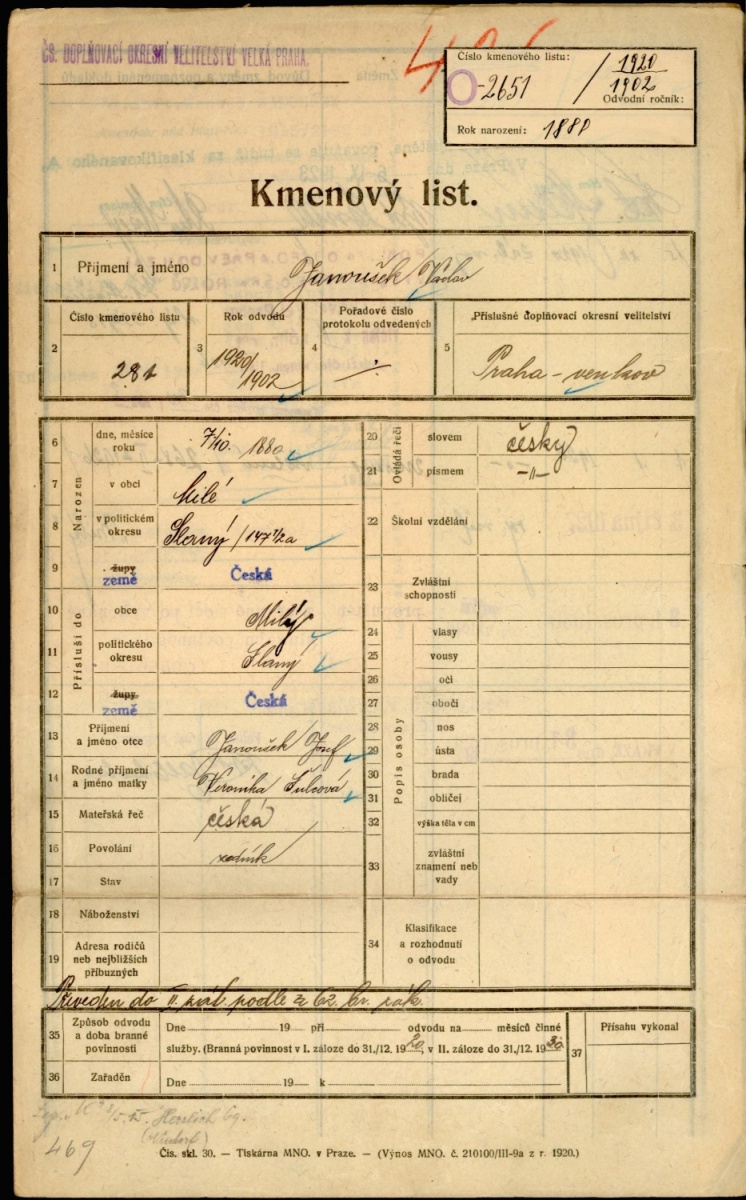 ČS. DOPLŇOVACÍ OKRESNÍ VELITELSTVÍ VELKÁ PRAHA.
Číslo kmenového listu:
O-2651 / 1920
1902
Odvodní ročník:
Rok narození: 1880
Kmenový list.
1 Příjmení a jméno Janoušek Václav
Číslo kmenového listu
2 281
Rok odvodu
3 1920/1902
Pořadové číslo protokolu odvedených
4
Příslušné doplňovací okresní velitelství
5 Praha - venkov
Narozen
6 dne, měsíce roku 7/10. 1880
7 v obci Milé
8 v politickém okresu Slaný /147 1/2a
9 župy země Česká
Přísluší do
10 obce Milý
11 politického okresu Slaný
12 župy země Česká
13 Příjmení a jméno otce Janoušek Josef
14 Rodné příjmení a jméno matky Veronika Šulcová
15 Mateřská řeč česká
16 Povolání
17 Stav
18 Náboženství
19 Adresa rodičů neb nejbližších příbuzných
Ovládá řeči
20 slovem česky
21 písmem -"-
22 Školní vzdělání
23 Zvláštní schopnosti
Popis osoby
24 vlasy
25 vousy
26 oči
27 obočí
28 nos
29 ústa
30 brada
31 obličej
32 výška těla v cm
33 zvláštní znamení neb vady
34 Klasifikace a rozhodnutí o odvodu
Převeden do II. podle § 62. br. zák.
35 Způsob odvodu a doba branné povinnosti
Dne 19 při odvodu na měsíců činné
služby. (Branná povinnost v I. záloze do 31./12. 1920, v II. záloze do 31./12. 1930
36 Zařaděn
Dne 19 k
37 Přísahu vykonal
469
Čís. skl. 30. — Tiskárna MNO. v Praze. — (Výnos MNO. č. 210100/III-9a z r. 1920.)